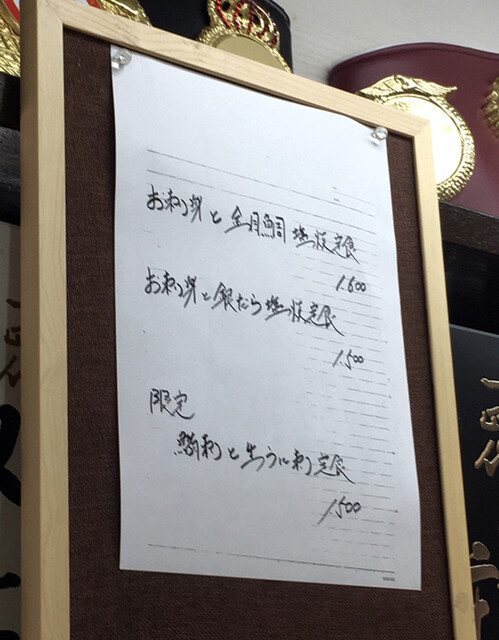 お刺身と金目鯛塩焼定食
1.600
お刺身と銀だら塩焼定食
1.500
限定
鯵刺と生うに刺定食
1.500